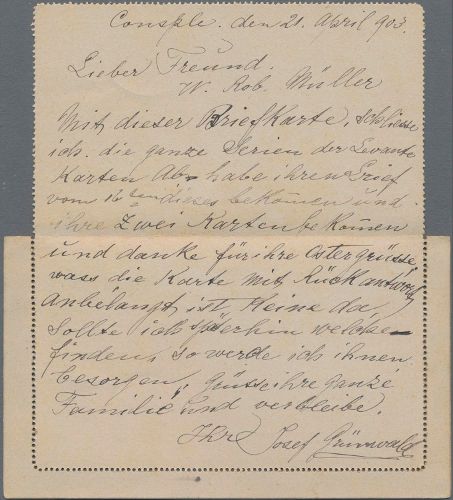 Consple. den 21. April 903.
Lieber Freund.
W. Rob. Müller
Mit dieser Briefkarte, schliesse
ich. die ganze Serien der Levante
Karten Ab - habe ihren Brief
vom 16 ten dieses bekommen und
ihre Zwei Karten bekommen
und danke für ihre Ostergrüsse
wass die Karte mit Rückantwort
Anbelangt ist Keine da
sollte ich späterhin welche
finden, so werde ich ihnen
besorgen, grüsse ihre ganze
Familie und verbleibe.
Ihr Josef Grünwald